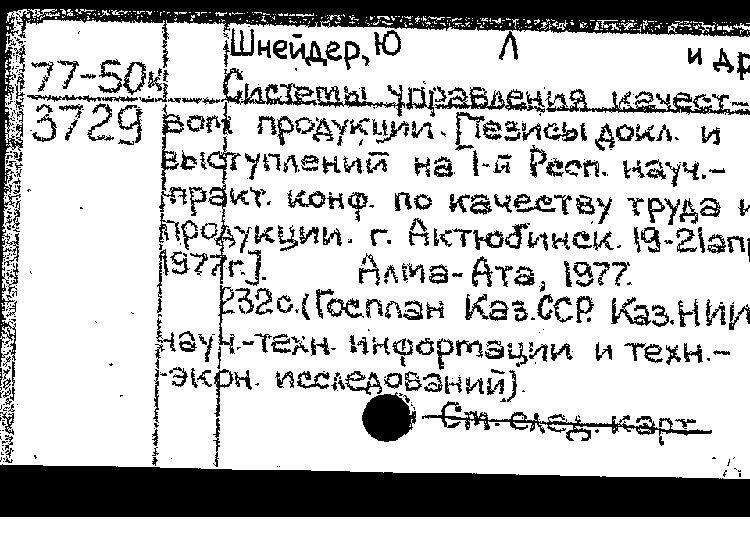 Шнейдер, Ю Л и др
77-50к Системы управления качест-
3729 вом продукции. [Тезисы докл. и
выступлений на 1-й Респ. науч.-
практ. конф. по качеству труда и
продукции. г. Актюбинск. 19-21 апр
1977г.]. Алма-Ата, 1977.
232с. (Госплан Каз.ССР. Каз.НИИ
науч.-техн. информации и техн.-
-экон. исследований).
См. след. карт.